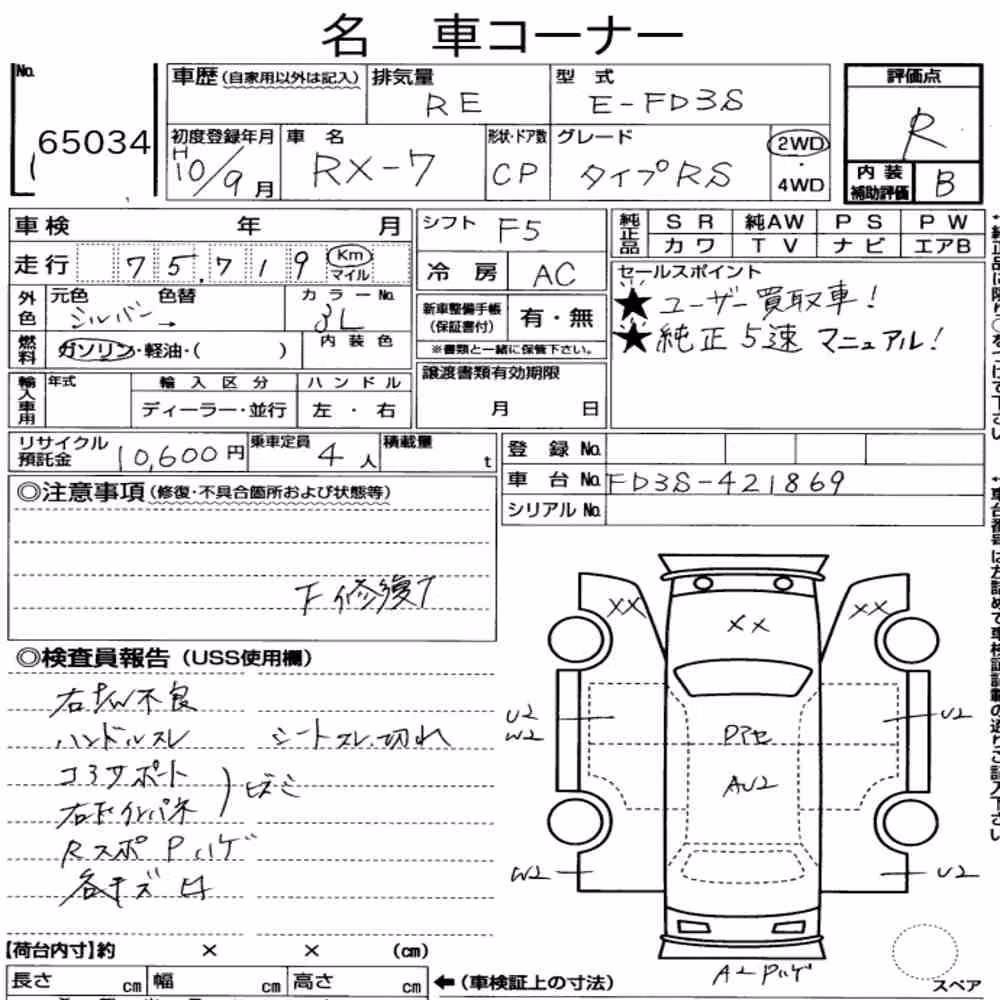 名車コーナー
No. 65034
車歴(自家用以外は記入)
排気量 RE
型式 E-FD3S
評価点 R
初度登録年月 H10/9月
車名 RX-7
形状・ドア数 CP
グレード タイプRS
2WD・4WD
内装補助評価 B
車検 年 月
シフト F5
純正品 SR 純AW PS PW
カワ TV ナビ エアB
走行 75,719 Km マイル
冷房 AC
セールスポイント
★ユーザー買取車!
★純正5速マニュアル!
外色 元色 シルバー→ 色替 カラーNo.
新車整備手帳(保証書付) 有・無
※書類と一緒に保管下さい。
燃料 ガソリン・軽油・( ) 内装色
輸入車用 年式 輸入区分 ハンドル
ディーラー・並行 左・右
譲渡書類有効期限
月 日
リサイクル預託金 10,600円
乗車定員 4人
積載量 t
登録No.
車台No. FD3S-421869
シリアルNo.
◎注意事項(修復・不具合箇所および状態等)
F修復
◎検査員報告(USS使用欄)
不良
ハンドルスレ シートスレ、切れ
コアサポート
右F インパネ
Rスポ Pハゲ
各キズ
XX XX XX
U2 W2 U2
AU2
W2 U2
A2 Pハゲ
【荷台内寸】約 × × (cm)
長さ cm 幅 cm 高さ cm ←(車検証上の寸法)
スペア